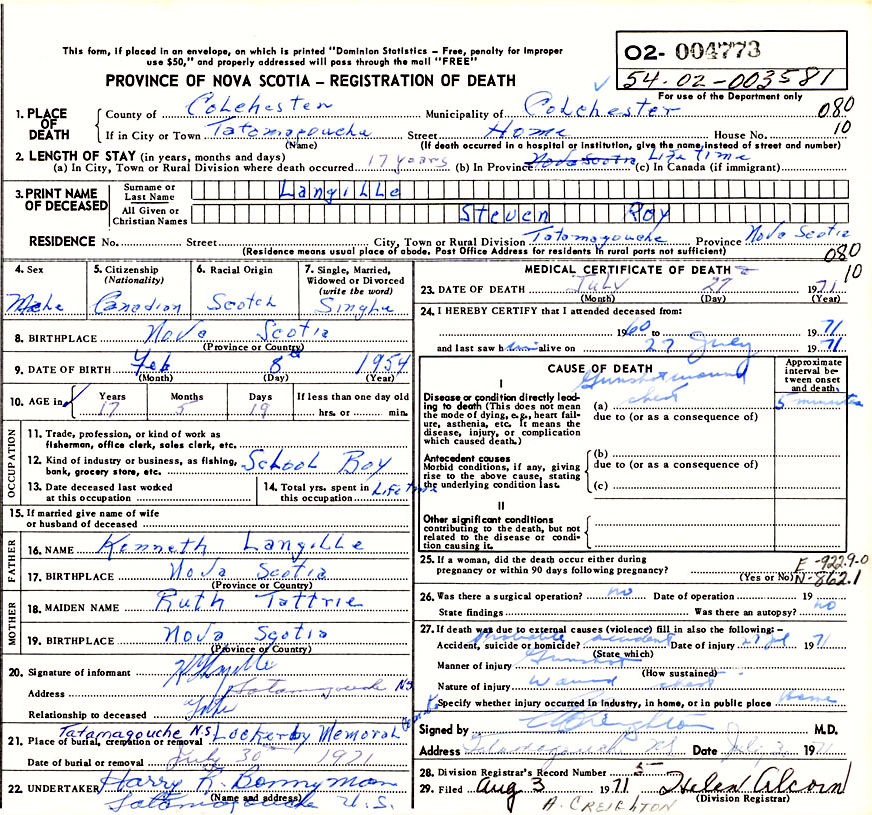 This form, if placed in an envelope, on which is printed "Dominion Statistics - Free, penalty for improper
use $50," and properly addressed will pass through the mail "FREE"
O2- 004773
54-02-003581
For use of the Department only
PROVINCE OF NOVA SCOTIA - REGISTRATION OF DEATH
080
10
1. PLACE OF DEATH
County of Colchester Municipality of Colchester
If in City or Town Tatamagouche Street Home House No.
(Name) (If death occurred in a hospital or institution, give the name instead of street and number)
2. LENGTH OF STAY (in years, months and days)
(a) In City, Town or Rural Division where death occurred 17 years (b) In Province Nova Scotia Life time (c) In Canada (if immigrant)
3. PRINT NAME OF DECEASED
Surname or Last Name Langille
All Given or Christian Names Steven Roy
RESIDENCE No. Street City, Town or Rural Division Tatamagouche Province Nova Scotia
(Residence means usual place of abode. Post Office Address for residents in rural parts not sufficient)
080
10
4. Sex Male
5. Citizenship (Nationality) Canadian
6. Racial Origin Scotch
7. Single, Married, Widowed or Divorced (write the word) Single
8. BIRTHPLACE Nova Scotia
(Province or Country)
9. DATE OF BIRTH Feb 8 1954
(Month) (Day) (Year)
10. AGE in Years 17 Months 5 Days 19 If less than one day old
hrs. or min.
OCCUPATION
11. Trade, profession, or kind of work as
fisherman, office clerk, sales clerk, etc.
12. Kind of industry or business, as fishing,
bank, grocery store, etc. School Boy
13. Date deceased last worked
at this occupation
14. Total yrs. spent in
this occupation Life time
15. If married give name of wife
or husband of deceased
FATHER
16. NAME Kenneth Langille
17. BIRTHPLACE Nova Scotia
(Province or Country)
MOTHER
18. MAIDEN NAME Ruth Tattrie
19. BIRTHPLACE Nova Scotia
(Province or Country)
20. Signature of informant
Address Tatamagouche NS
Relationship to deceased
Tatamagouche N.S
21. Place of burial, cremation or removal Lockerby Memorial
Date of burial or removal July 30 1971
22. UNDERTAKER Harry R. Bonnyman
(Name and address)
Tatamagouche N.S.
MEDICAL CERTIFICATE OF DEATH
23. DATE OF DEATH July 27 1971
(Month) (Day) (Year)
24. I HEREBY CERTIFY that I attended deceased from:
1960 to 1971
and last saw h alive on 27 July 1971
CAUSE OF DEATH
Approximate interval between onset and death
I
Disease or condition directly leading to death (This does not mean the mode of dying, e.g., heart failure, asthenia, etc. It means the disease, injury, or complication which caused death.)
Gunshot wound
(a) chest 5 minutes
due to (or as a consequence of)
Antecedent causes
Morbid conditions, if any, giving rise to the above cause, stating the underlying condition last.
(b)
due to (or as a consequence of)
(c)
II
Other significant conditions
contributing to the death, but not related to the disease or condition causing it.
25. If a woman, did the death occur either during
pregnancy or within 90 days following pregnancy?
(Yes or No)
E-922.9-0
N-862.1
26. Was there a surgical operation? no Date of operation 19
State findings Was there an autopsy? no
27. If death was due to external causes (violence) fill in also the following:-
Accident, suicide or homicide? Probable accident Date of injury 27 Jul 1971
(State which)
Manner of injury Gunshot
(How sustained)
Nature of injury wound chest
Specify whether injury occurred in industry, in home, or in public place Home
Signed by Creighton M.D.
Address Tatamagouche NS Date July 1971
28. Division Registrar's Record Number 5
29. Filed Aug 3 1971 Helen Alcorn
(Division Registrar)
A. CREIGHTON